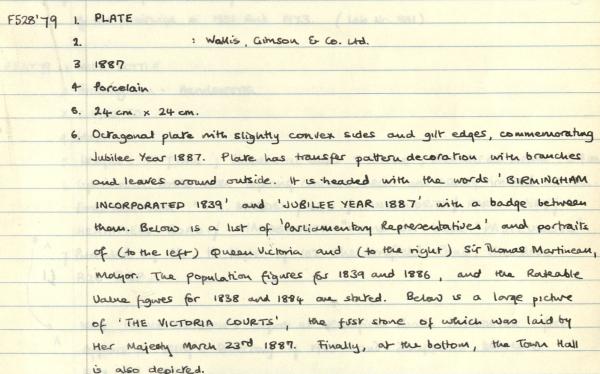 F528'79 1. PLATE
2. : Wallis, Gimson & Co. Ltd.
3 1887
4 Porcelain
5. 24 cm. x 24 cm.
6. Octagonal plate with slightly convex sides and gilt edges, commemorating
Jubilee Year 1887. Plate has transfer pattern decoration with branches
and leaves around outside. It is headed with the words 'BIRMINGHAM
INCORPORATED 1839' and 'JUBILEE YEAR 1887' with a badge between
them. Below is a list of 'Parliamentary Representatives' and portraits
of (to the left) Queen Victoria and (to the right) Sir Thomas Martineau,
Mayor. The population figures for 1839 and 1886, and the Rateable
Value figures for 1838 and 1884 are stated. Below is a large picture
of 'THE VICTORIA COURTS', the first stone of which was laid by
Her Majesty March 23rd 1887. Finally, at the bottom, the Town Hall
is also depicted.